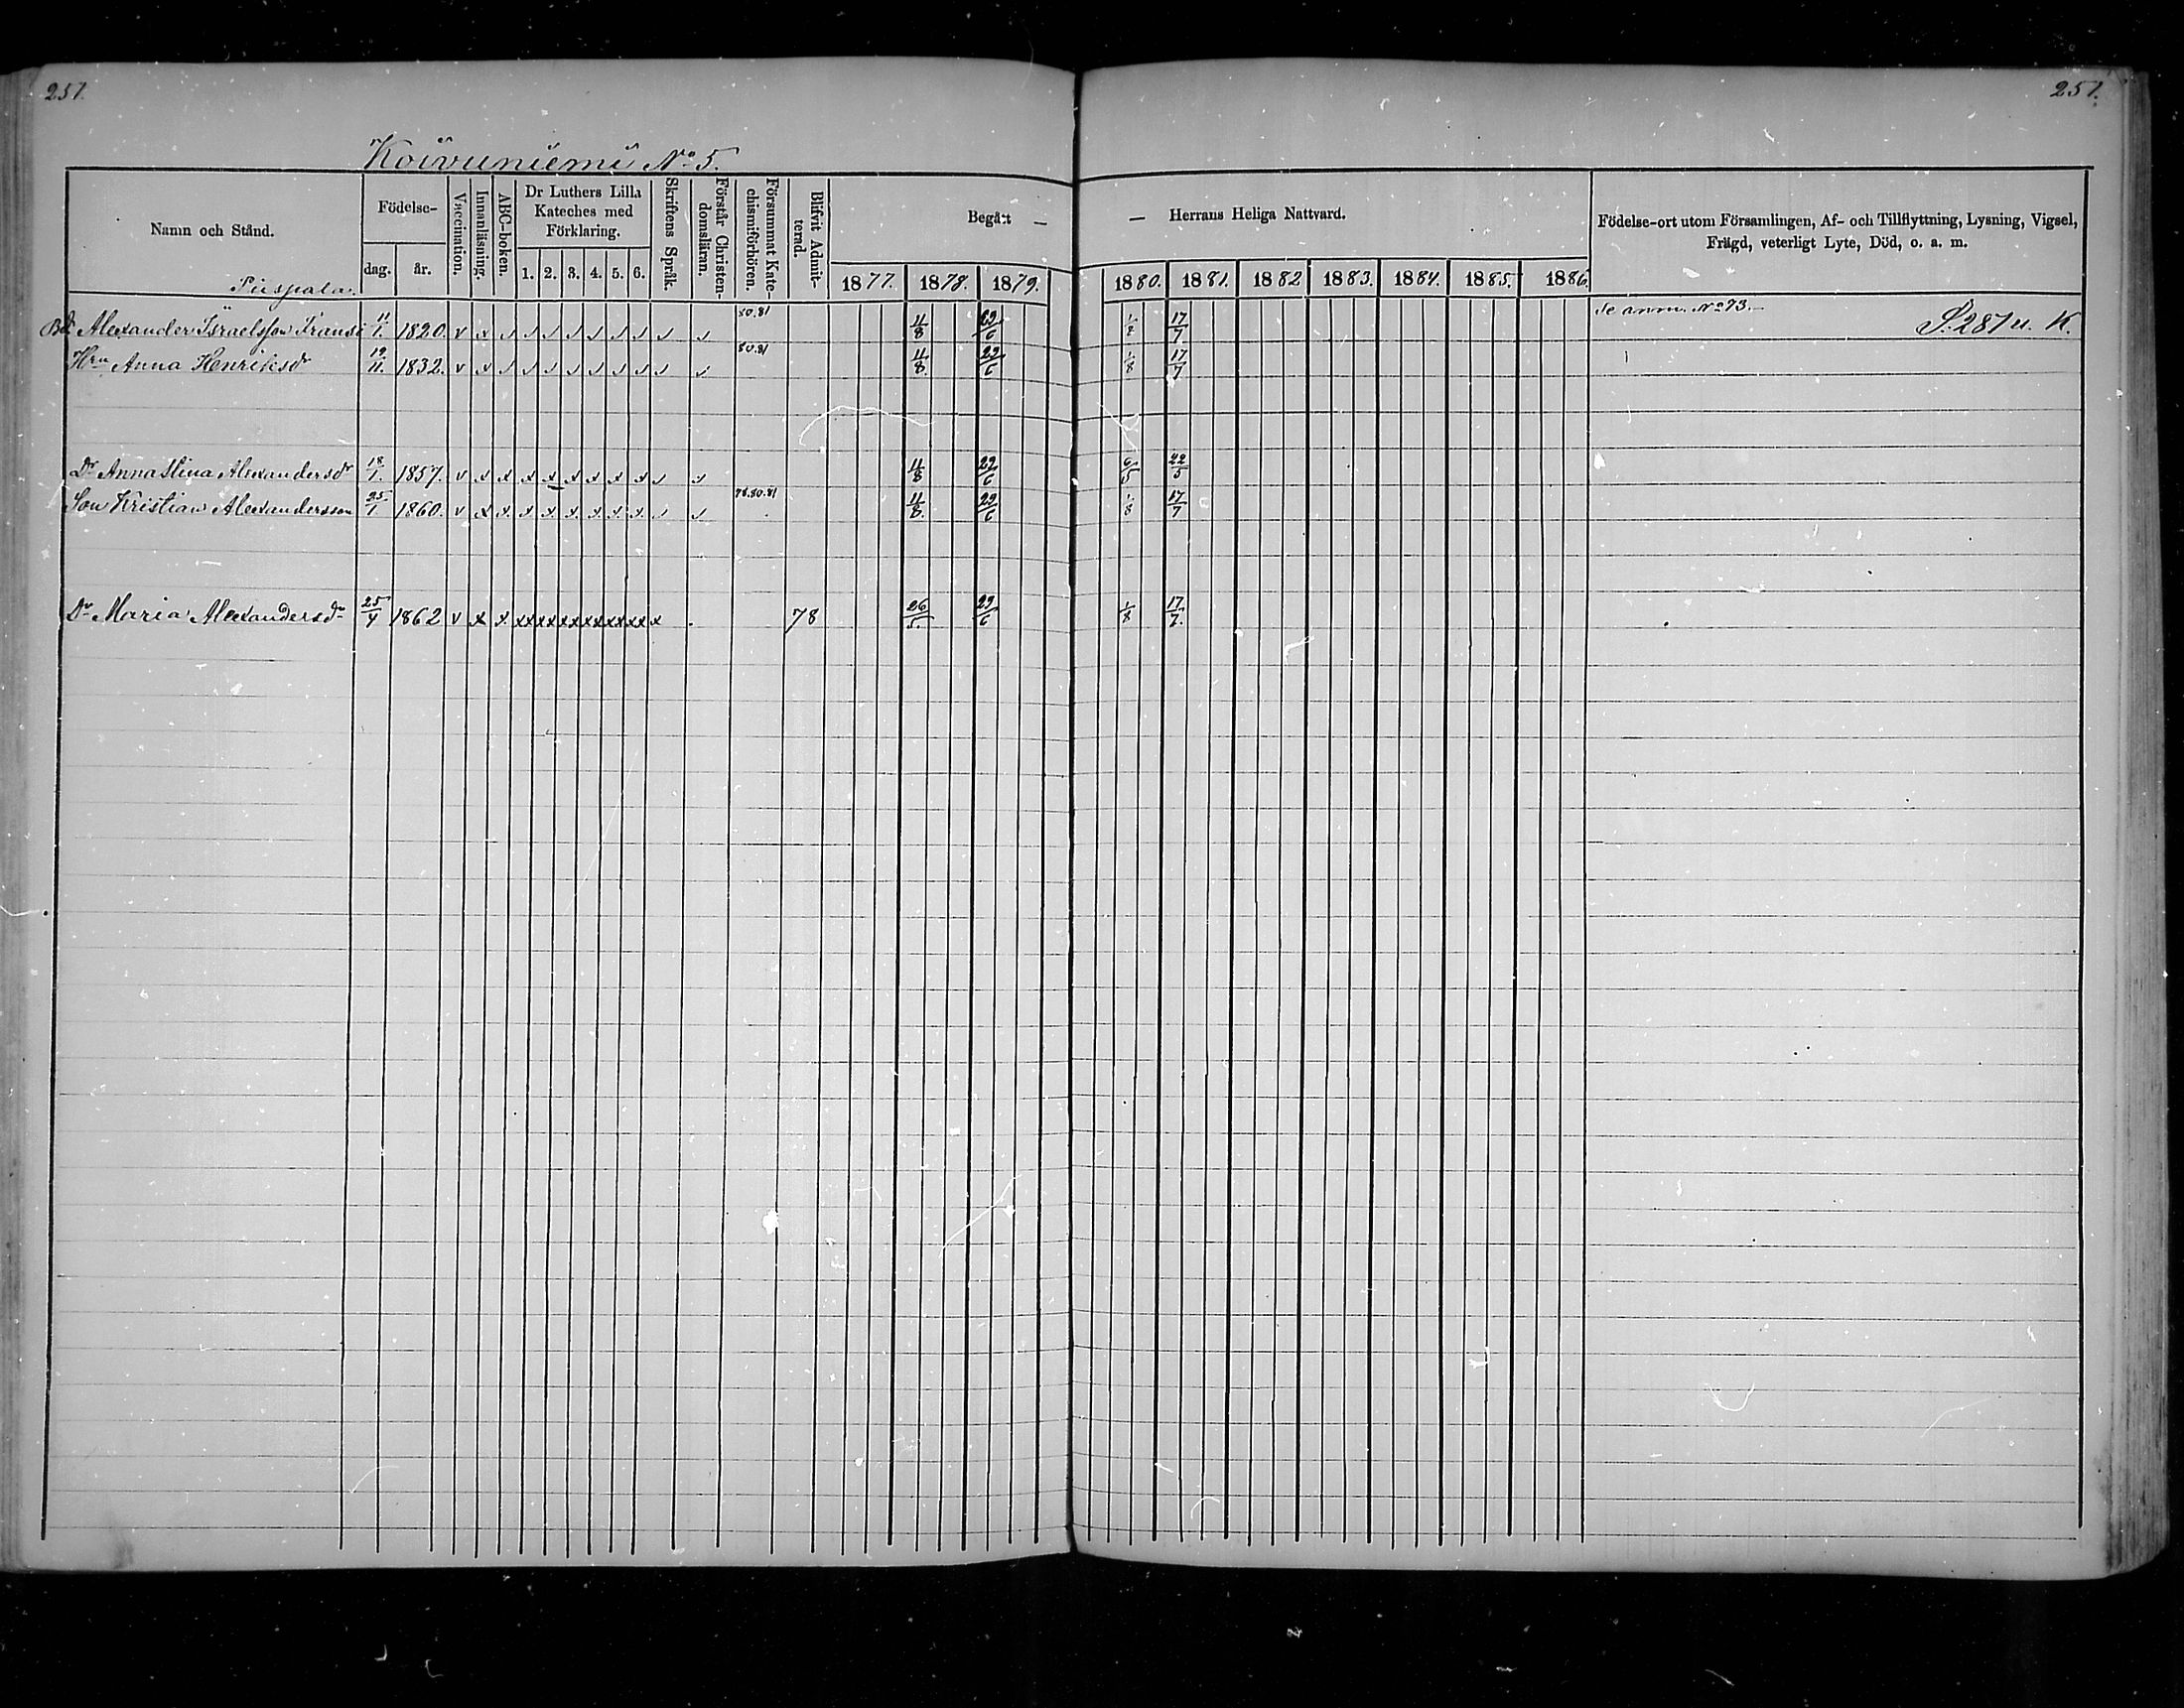 251. 251.
Koivuniemi No 5.
Namn och Stånd. Födelse- dag. år. Vaccination. Innanläsning. ABC-boken. Dr Luthers Lilla Kateches med Förklaring. 1. 2. 3. 4. 5. 6. Skriftens Språk. Förstår Christendomsläran. Försummat Katechismiförhören. Blifvit Admitterad. Begått — — Herrans Heliga Nattvard. Födelse-ort utom Församlingen, Af- och Tillflyttning, Lysning, Vigsel, Frägd, veterligt Lyte, Död, o. a. m.
1877. 1878. 1879. 1880. 1881. 1882 1883. 1884. 1885. 1886.
Piispala.
Alexander Israelsson 11/1. 1820. v x 80.81 11/8 29/6 1/8 17/7 Se anm. No 73. S. 287 u. K.
Hru Anna Henriksdr 19/11. 1832. v x 80.81 11/8. 29/6 1/8 17/7
Dr Anna Stina Alexandersdr 18/1. 1857. v x x x x x x x x 11/8 29/6 6/5 22/5
Son Kristian Alexandersson 25/1 1860. v x x. x x x. x. x. x. 78.80.81 11/8. 29/6 1/8 17/7
Dr Maria Alexandersdr 25/4 1862 v x x. xx xx xx xx xx xx x 78 26/5. 29/6 1/8 17/7.